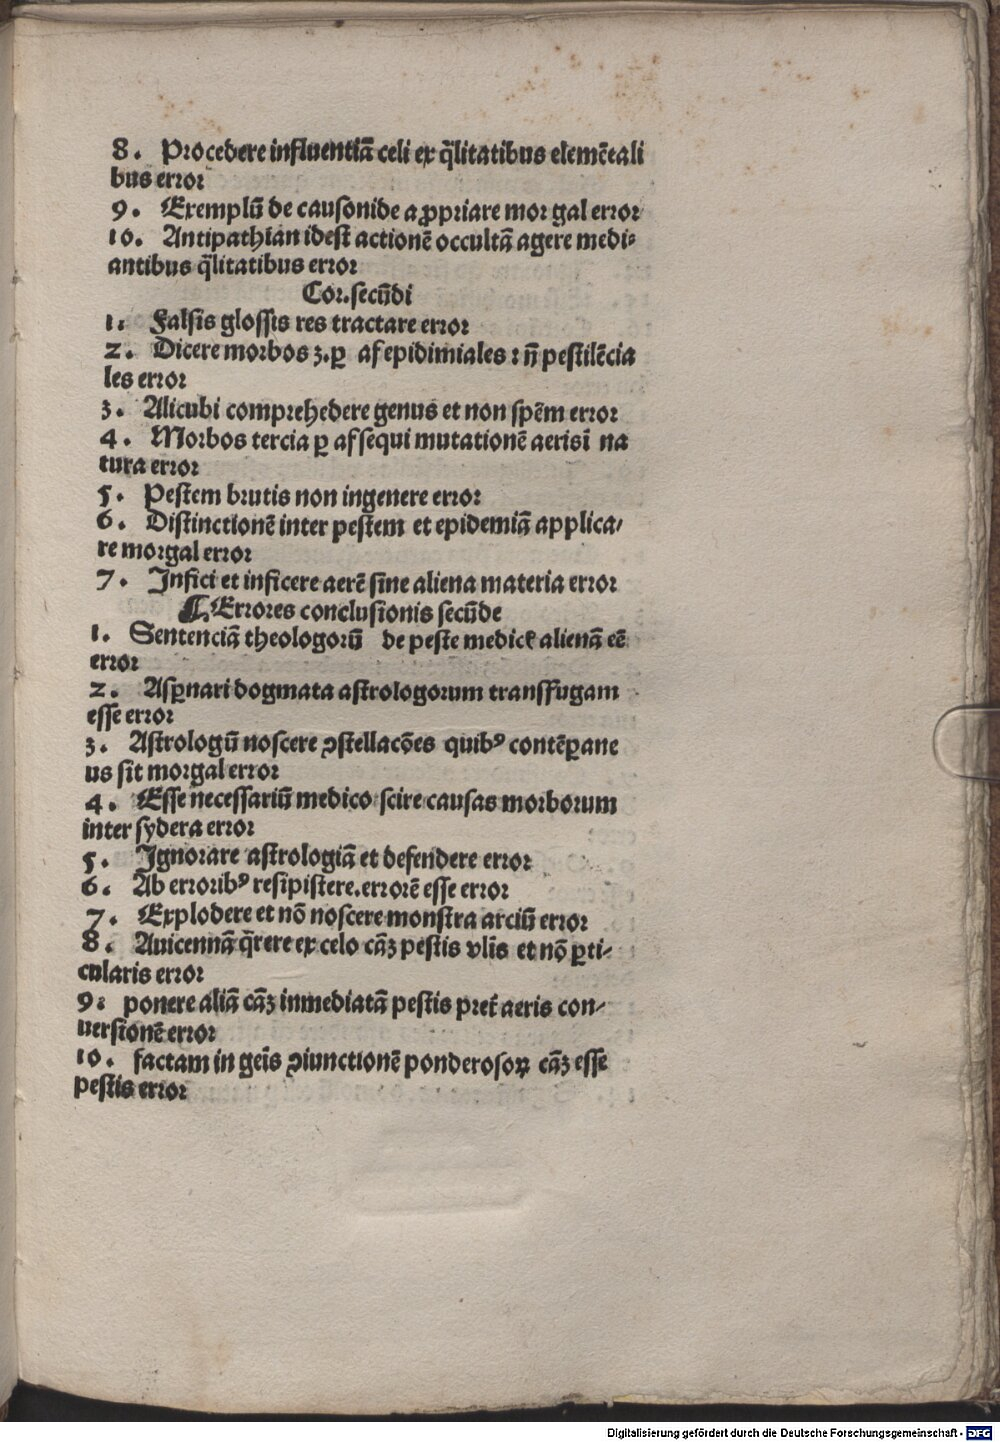 8. Procedere influentiā celi ex q̄litatibus elemētali
bus error
9. Exemplū de causonide a ꝓpriare mor gal error
10. Antipathian idest actionē occultā agere medi⸗
antibus q̄litatibus error
Cor. secūdi
1: Falsis glossis res tractare error
2. Dicere morbos 3. ꝑ af epidimiales : n̄ pestilēcia
les error
3. Alicubi comprehēdere genus et non spēm error
4. Morbos tercia ꝑ af sequi mutationē aerisī na
tura error
5. Pestem brutis non ingenere error
6. Distinctionē inter pestem et epidemiā applica⸗
re morgal error
7. Infici et inficere aerē sine aliena materia error
¶ Errores conclusionis secūde
1. Sentenciā theologorū de peste medicꝭ alienā eē
error
2. Asꝑnari dogmata astrologorum transfugam
esse error
3. Astrologū noscere ꝯstellacōes quibꝰ contēꝑane
us sit morgal error
4. Esse necessariū medico scire causas morborum
inter sydera error
5. Ignorare astrologiā et defendere error
6. Ab erroribꝰ resipistere. errorē esse error
7. Explodere et nō noscere monstra arciū error
8. Auicennā q̄rere ex celo cāꝫ pestis vlīs et nō ꝑti⸗
cularis error
9: ponere aliā cāꝫ inmediatā pestis pret̄ aeris con⸗
uersionē error
10. factam in geīs ꝯiunctionē ponderosoꝝ cāꝫ esse
pestis error
Digitalisierung gefördert durch die Deutsche Forschungsgemeinschaft - DFG